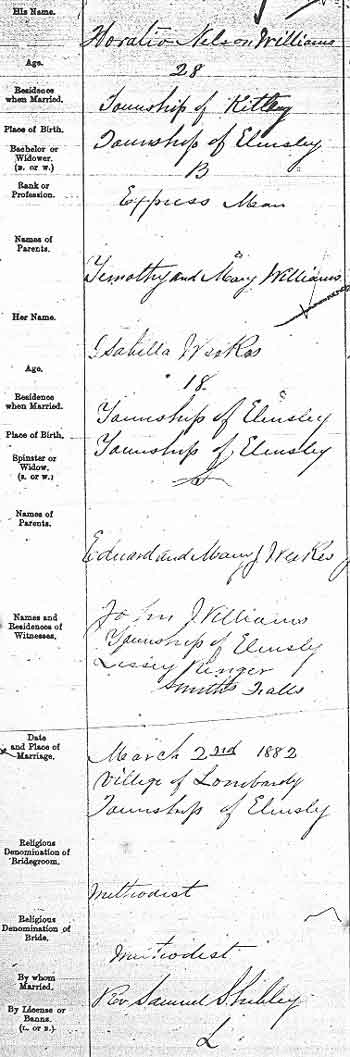 His Name.
Horatio Nelson Williams
Age.
28
Residence
when Married.
Township of Kitley
Place of Birth.
Township of Elmsley
Bachelor or
Widower.
(B. or W.)
B
Rank or
Profession.
Express Man
Names of
Parents.
Timothy and Mary Williams
Her Name.
Isabella
Age.
18
Residence
when Married.
Township of Elmsley
Place of Birth.
Township of Elmsley
Spinster or
Widow.
(S. or W.)
S
Names of
Parents.
Edward and Mary J
Names and
Residences of
Witnesses.
John J Williams
Township of Elmsley
Lissey
Smiths Falls
Date
and Place of
Marriage.
March 22nd 1882
Village of Lombardy
Township of Elmsly
Religious
Denomination of
Bridegroom.
Methodist
Religious
Denomination of
Bride.
Methodist
By whom
Married.
Rev Samuel Shibley
By License or
Banns.
(L. or B.)
L